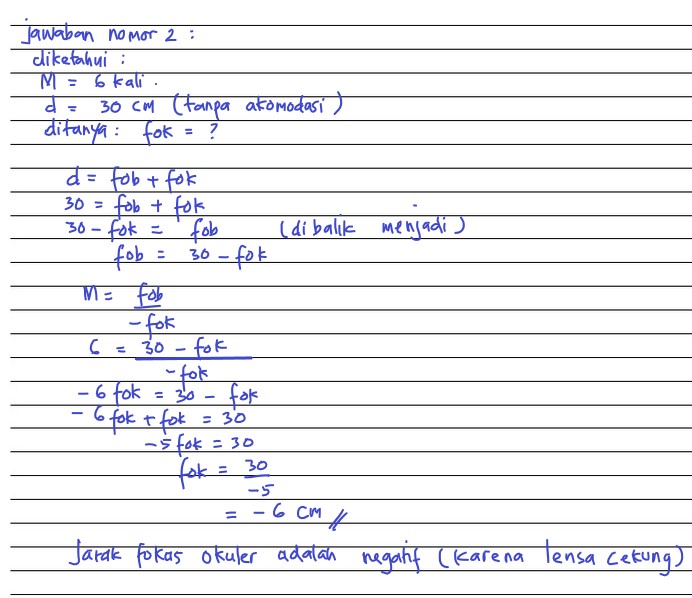 jawaban nomor 2 :
diketahui :
M = 6 kali .
d = 30 cm (tanpa akomodasi)
ditanya : fok = ?
d = fob + fok
30 = fob + fok
30 - fok = fob (dibalik menjadi)
fob = 30 - fok
M = fob
- fok
6 = 30 - fok
- fok
- 6 fok = 30 - fok
- 6 fok + fok = 30
-5 fok = 30
fok = 30
-5
= - 6 cm //
Jarak fokas okuler adalah negatif (karena lensa cekung)